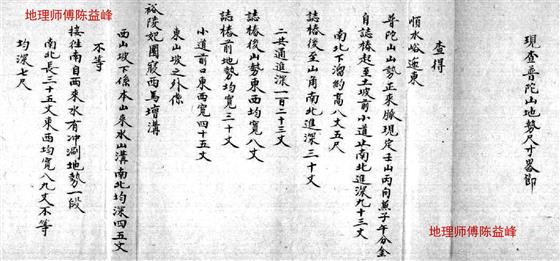 地理师傅陈益峰
現查普陀山地勢尺寸畧節
查得
順水峪迤東
普陀山山勢正来脈現定壬山丙向兼子午分金
自誌樁起至土坡前小道止南北進深九十三丈
南北下溜約高八丈五尺
誌樁後至山角南北進深三十丈
二共通進深一百二十三丈
誌樁後山勢東西均寬八丈
誌樁前地勢均寬三十丈
小道前口東西寬四十五丈
東山坡之外係
裕陵妃園寢西馬增溝
西山坡下係本山来水山溝南北均深四五丈
不等
接往南自西来水有冲涮地勢一段
南北長三十五丈東西均寬八九丈不等
均深七尺
地理师傅陈益峰